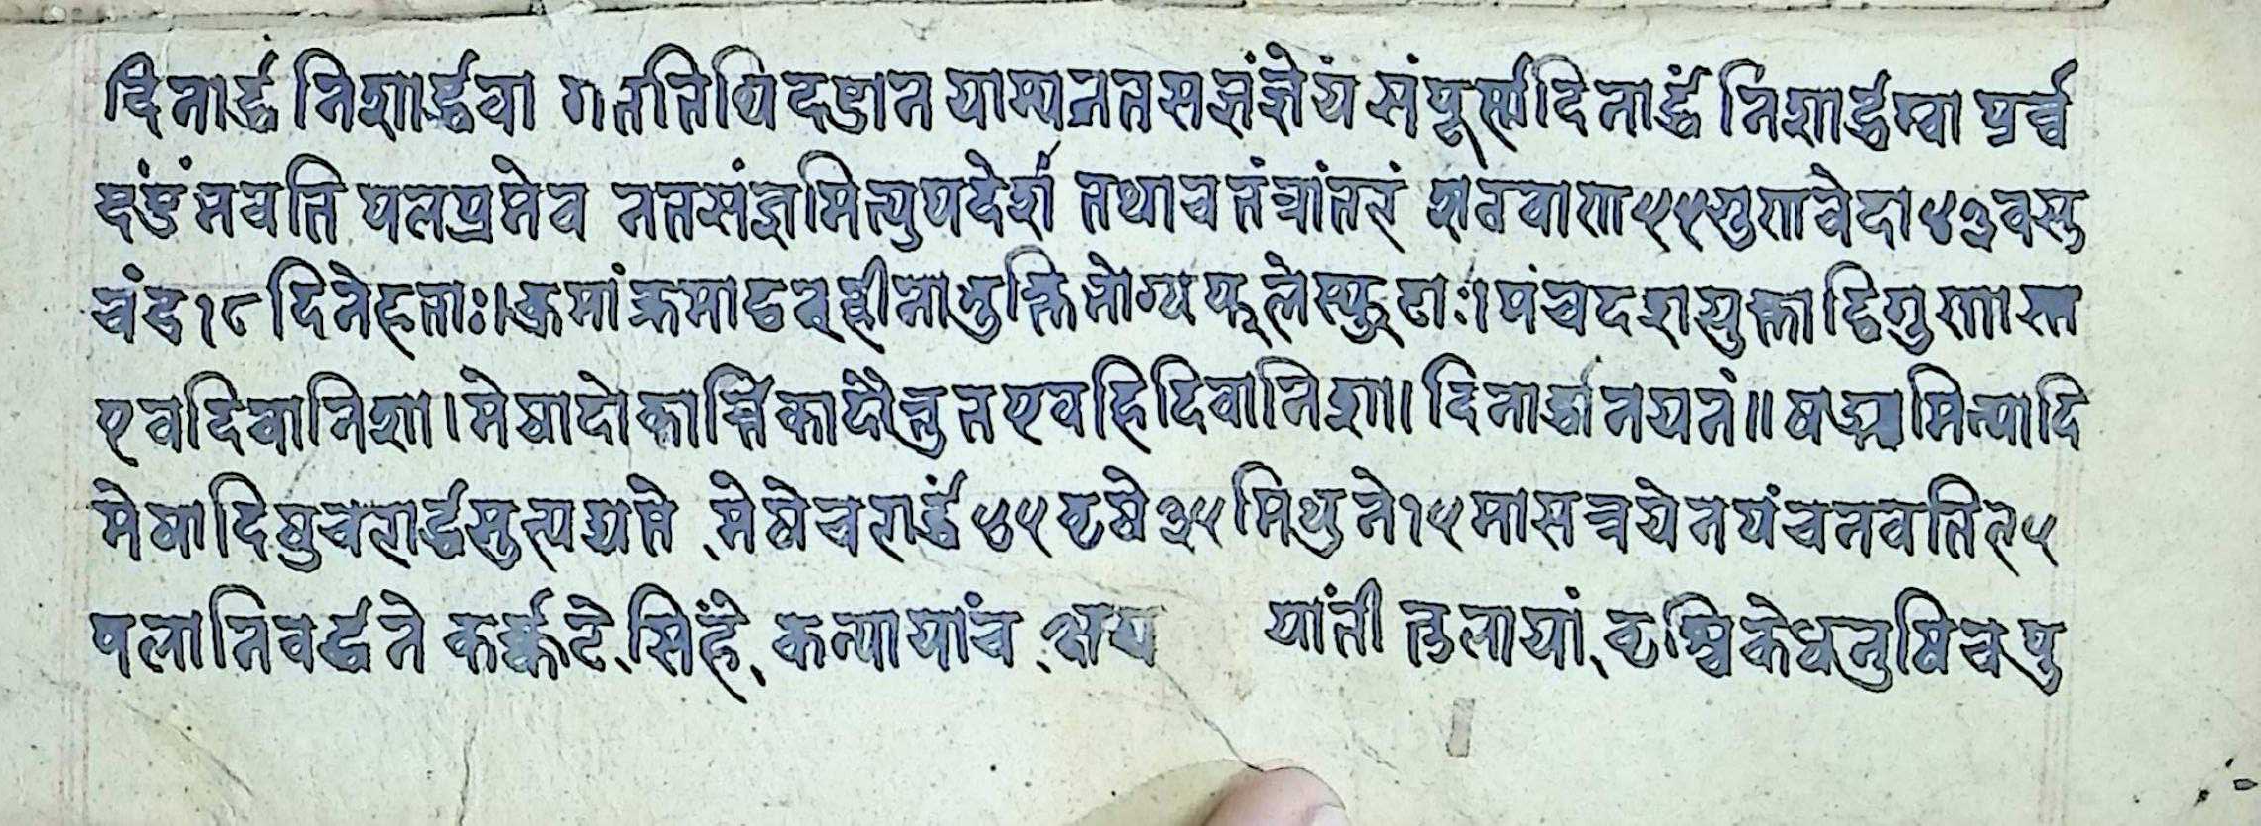 दिनार्द्ध निशार्द्धवा गततिथि दण्डान याम्यनतसज्ञंज्ञेयं संपूर्स्मदिनार्द्धं निशार्द्धम्वा पूर्व्व
दंडंनवति पलप्रमेव नतसंज्ञमित्युपदेर्श तथाच तंत्रांतरं शरवाण५५युगवेदा४३वसु
चंद्र१८दिनेहताः।क्रमांक्रमाद्धनहीनाभुक्तिभोग्यफलेस्फुटाः।पंचदशयुक्ताद्विगुणास्त
एवदिवानिशा।मेषादोकार्त्तिकादौनुतएवहिदिवानिशा।दिनार्द्धानयनं॥ मित्यादि
मेषादिषुचरार्द्धमुत्पद्यते मेषेचरार्द्धं४५वृषे३५मिथुने१५मासत्रयेनपंचनवति९५
पलानिवर्द्धते कर्क्कटे सिंहे कन्यायांच क्षय यांती तुलायां वृश्चिकेधनुषिचपु